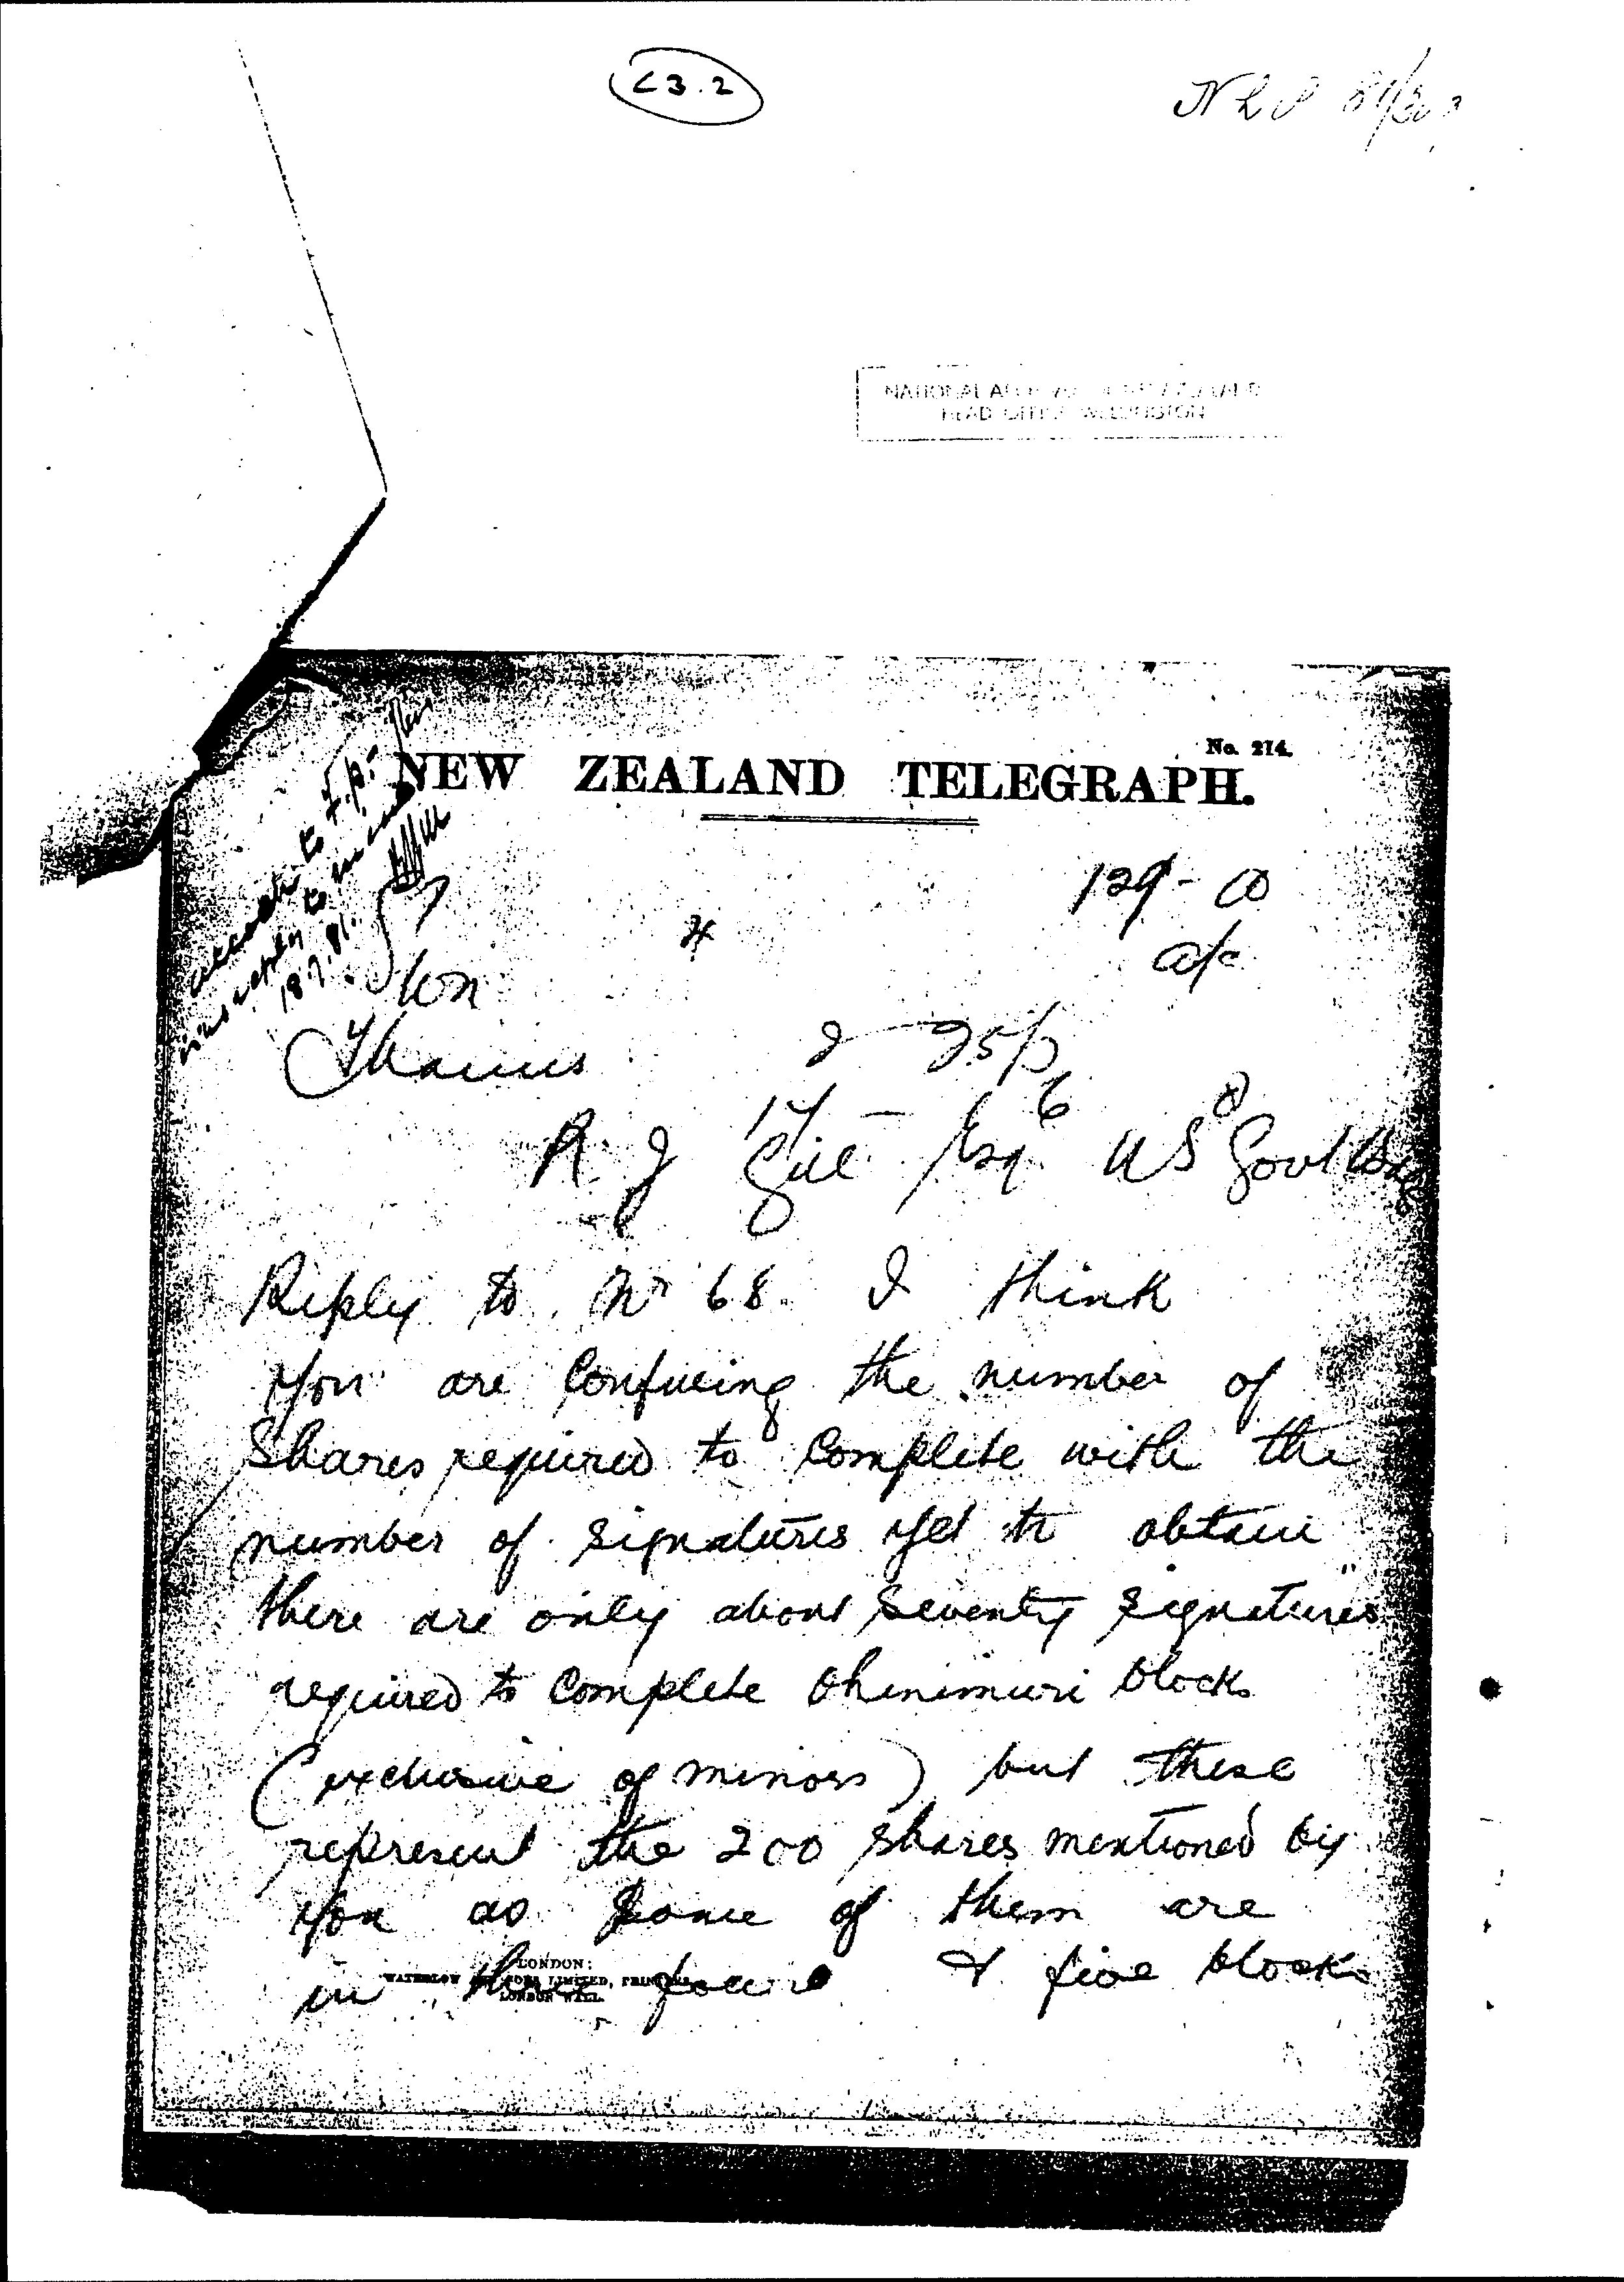 C3.2
NLP 81/
NATIONAL ARCHIVES OF NEW ZEALAND
HEAD OFFICE WELLINGTON
No. 214.
NEW ZEALAND TELEGRAPH.
attach to F.p.
reply to
18.7.81.
129-
a/c
Wn
Thames 2 25p
17 - 6
R J Gill Esq US Govt Bdg
Reply to No 68. I think
you are Confusing the number of
Shares required to Complete with the
number of signatures yet to obtain
there are only about seventy signatures
required to Complete Ohinimuri blocks
(exclusive of minors) but these
represent the 200 shares mentioned by
you as some of them are
in three four & five blocks
LONDON:
WATERLOW AND SONS LIMITED, PRINTERS,
LONDON WALL.